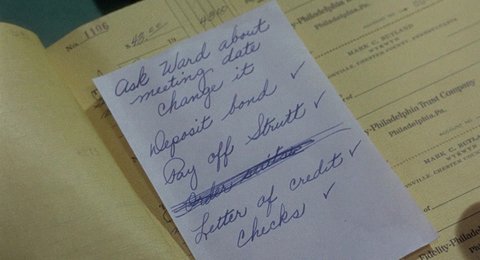 No. 1196
$ 43.00
Ask Ward about
meeting date
change it
Deposit bond ✓
Pay off Strutt ✓
Letter of credit ✓
checks ✓
-Philadelphia
Philadelphia, Pa.
MARK C. RUTLAND
-Philadelphia Trust Company
Philadelphia, Pa.
ACCOUNT NO.
MARK C. RUTLAND
WYKWYN
Fidelity-Philadelphia